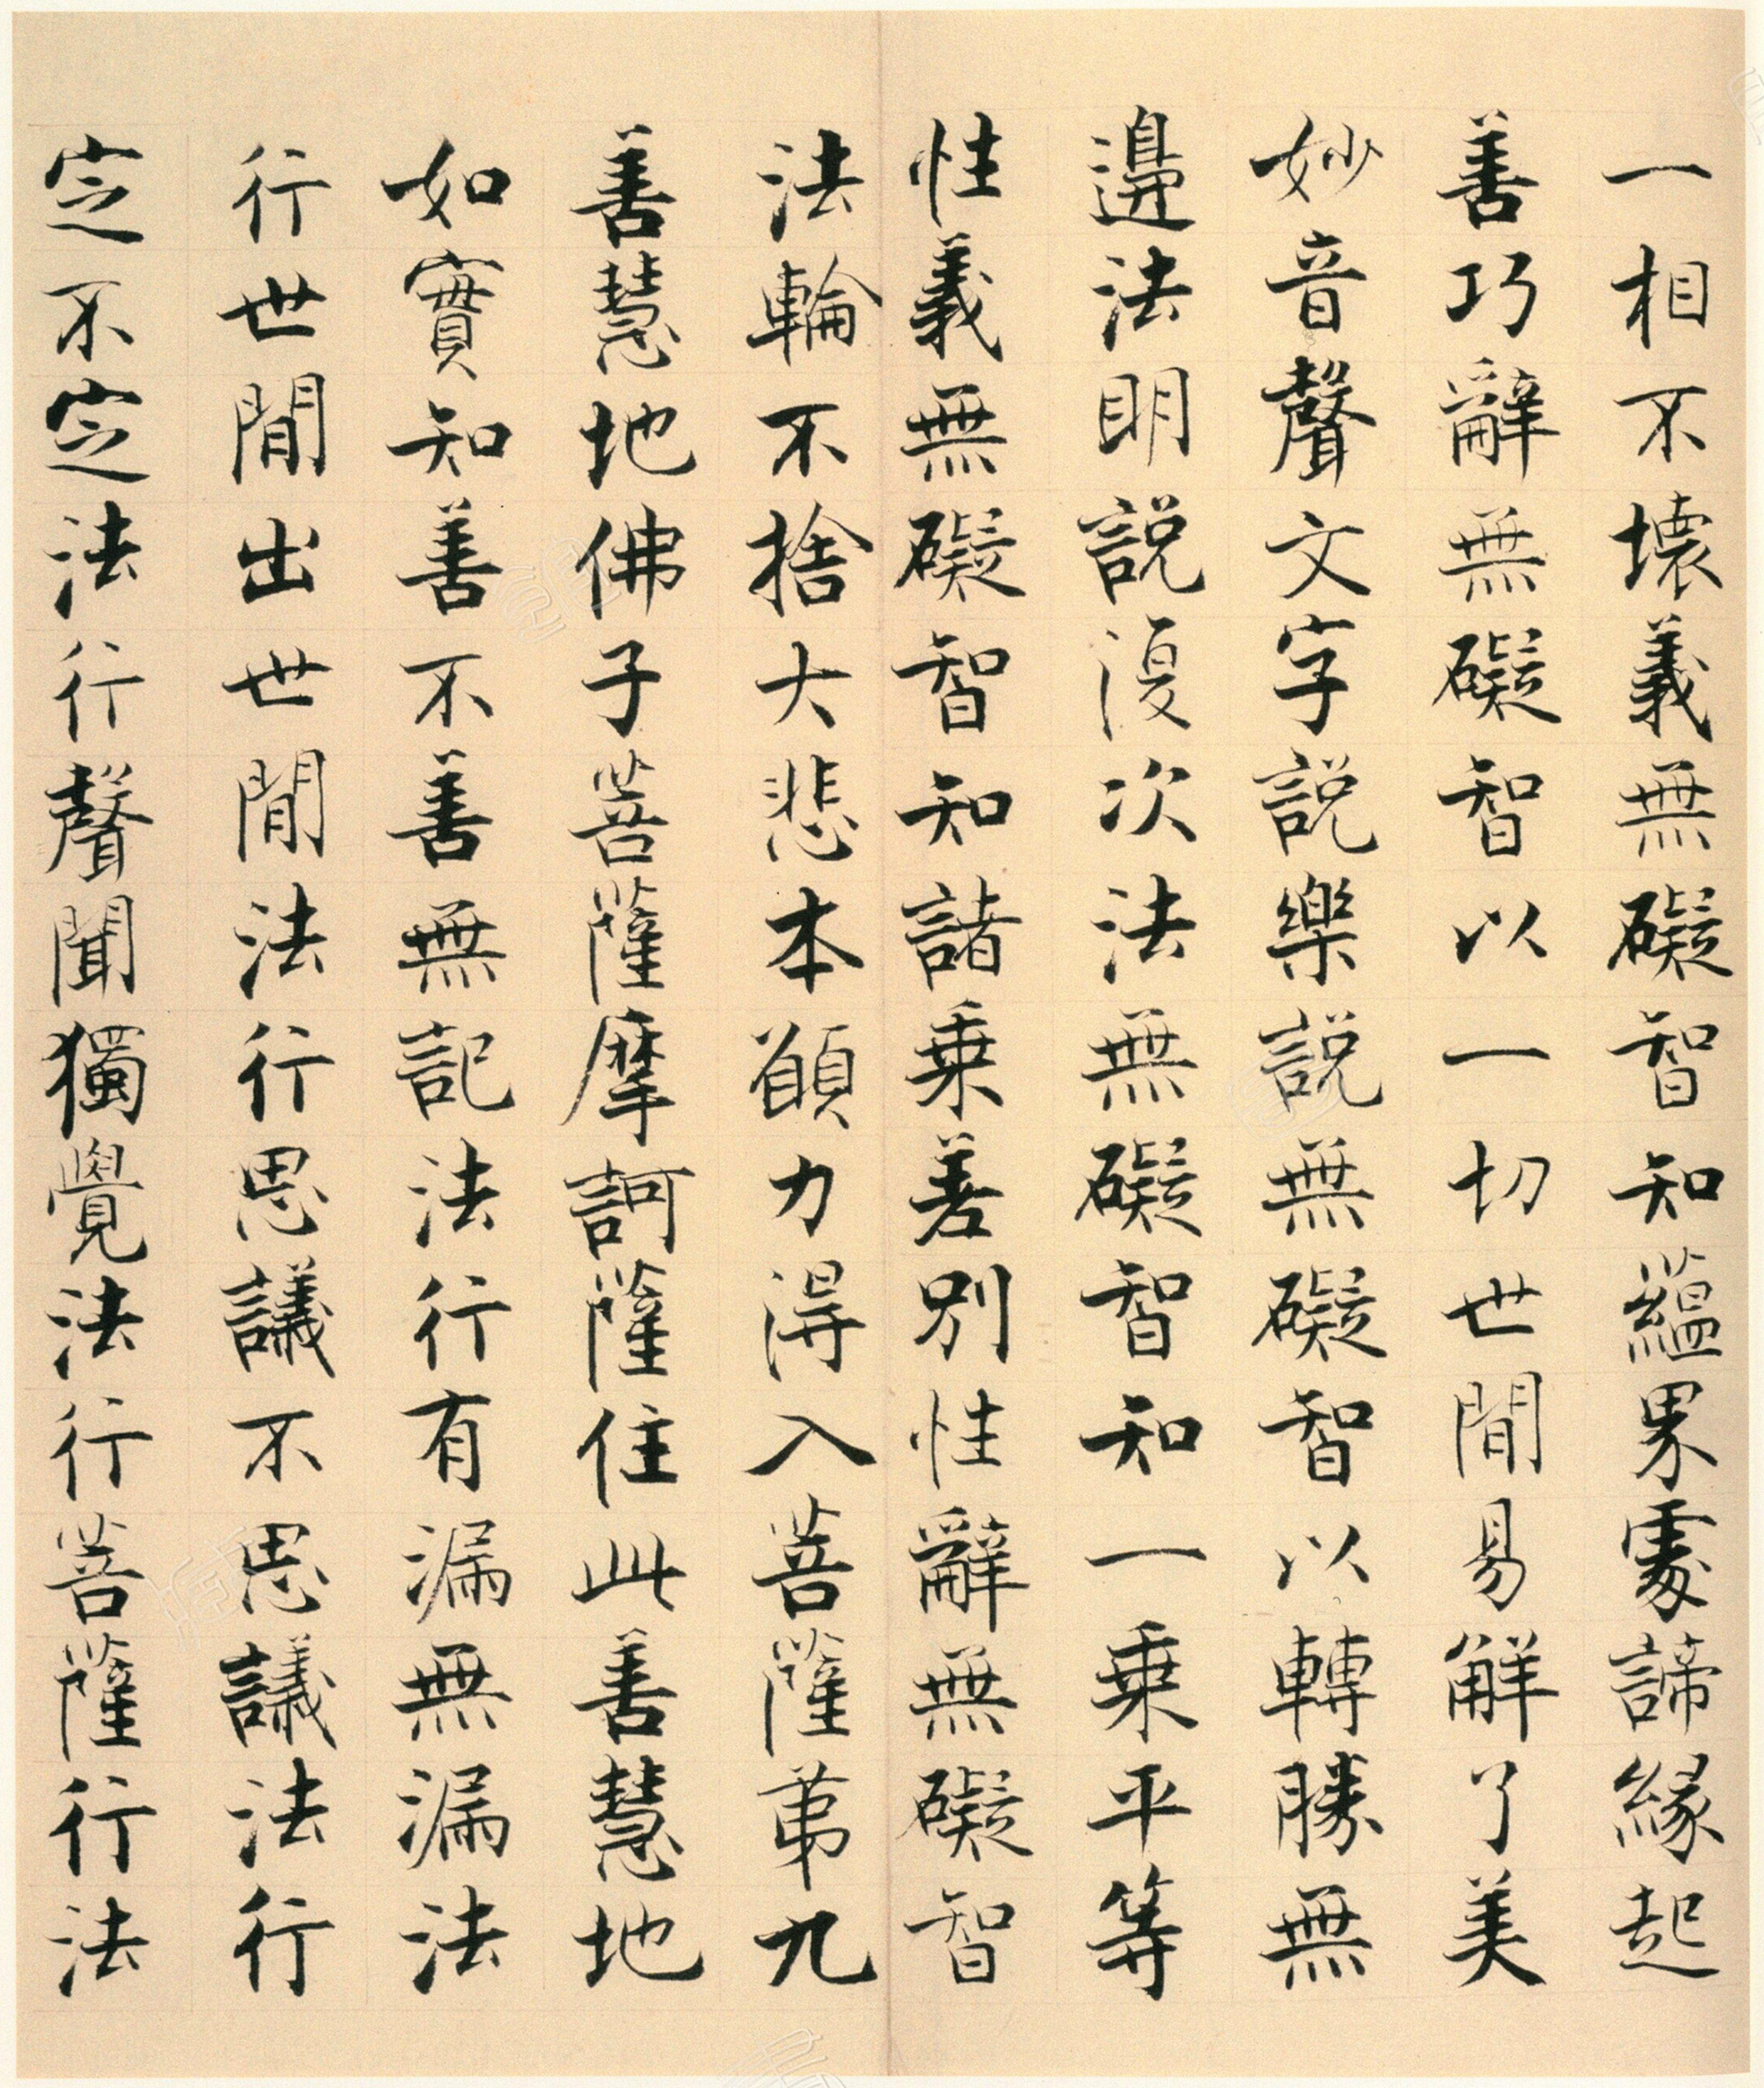 一相不壞義無礙智知蘊界處諦緣起
善巧辭無礙智以一切世間易解了美
妙音聲文字說樂說無礙智以轉勝無
邊法明說復次法無礙智知一乘平等
性義無礙智知諸乘差別性辭無礙智
法輪不捨大悲本願力得入菩薩第九
善慧地佛子菩薩摩訶薩住此善慧地
如實知善不善無記法行有漏無漏法
行世間出世間法行思議不思議法行
定不定法行聲聞獨覺法行菩薩行法